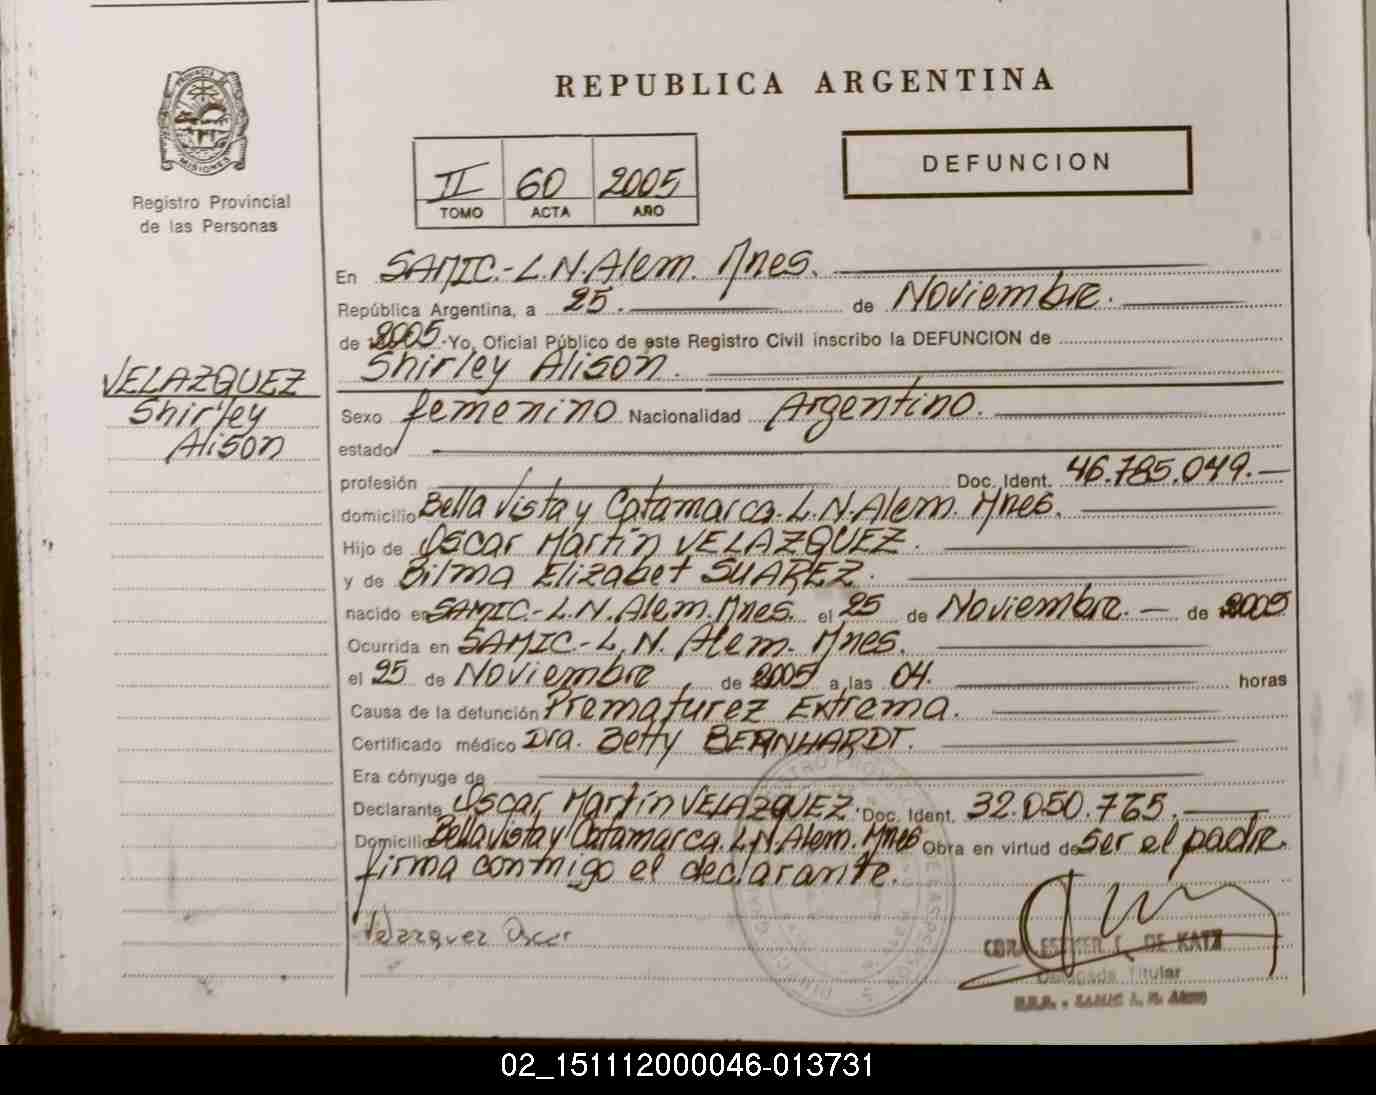 REPUBLICA ARGENTINA
PROVINCIA DE
MISIONES
Registro Provincial
de las Personas
II 60 2005
TOMO ACTA AÑO
DEFUNCION
VELAZQUEZ
Shirley
Alison
En SAMIC.-L.N.Alem. Mnes.
República Argentina, a 25. de Noviembre.
de 2005.Yo, Oficial Público de este Registro Civil inscribo la DEFUNCION de
Shirley Alison.
Sexo femenino Nacionalidad Argentino.
estado
profesión Doc. Ident. 46.785.049.
domicilio Bella Vista y Catamarca. L.N.Alem. Mnes.
Hijo de Oscar Martín VELAZQUEZ.
y de Bilma Elizabet SUAREZ.
nacido en SAMIC.-L.N.Alem.Mnes. el 25 de Noviembre. de 2005
Ocurrida en SAMIC.-L.N. Alem. Mnes.
el 25 de Noviembre de 2005 a las 04. horas
Causa de la defunción Prematurez Extrema.
Certificado médico Dra. Betty BERNHARDT.
Era cónyuge de
Declarante Oscar Martín VELAZQUEZ. Doc. Ident. 32.050.765.
Domicilio Bella vista y Catamarca. L.N.Alem. Mnes Obra en virtud de ser el padre.
firma conmigo el declarante.
Velazquez Oscar
ESTHER DE KATZ
Delegada Titular
02_151112000046-013731